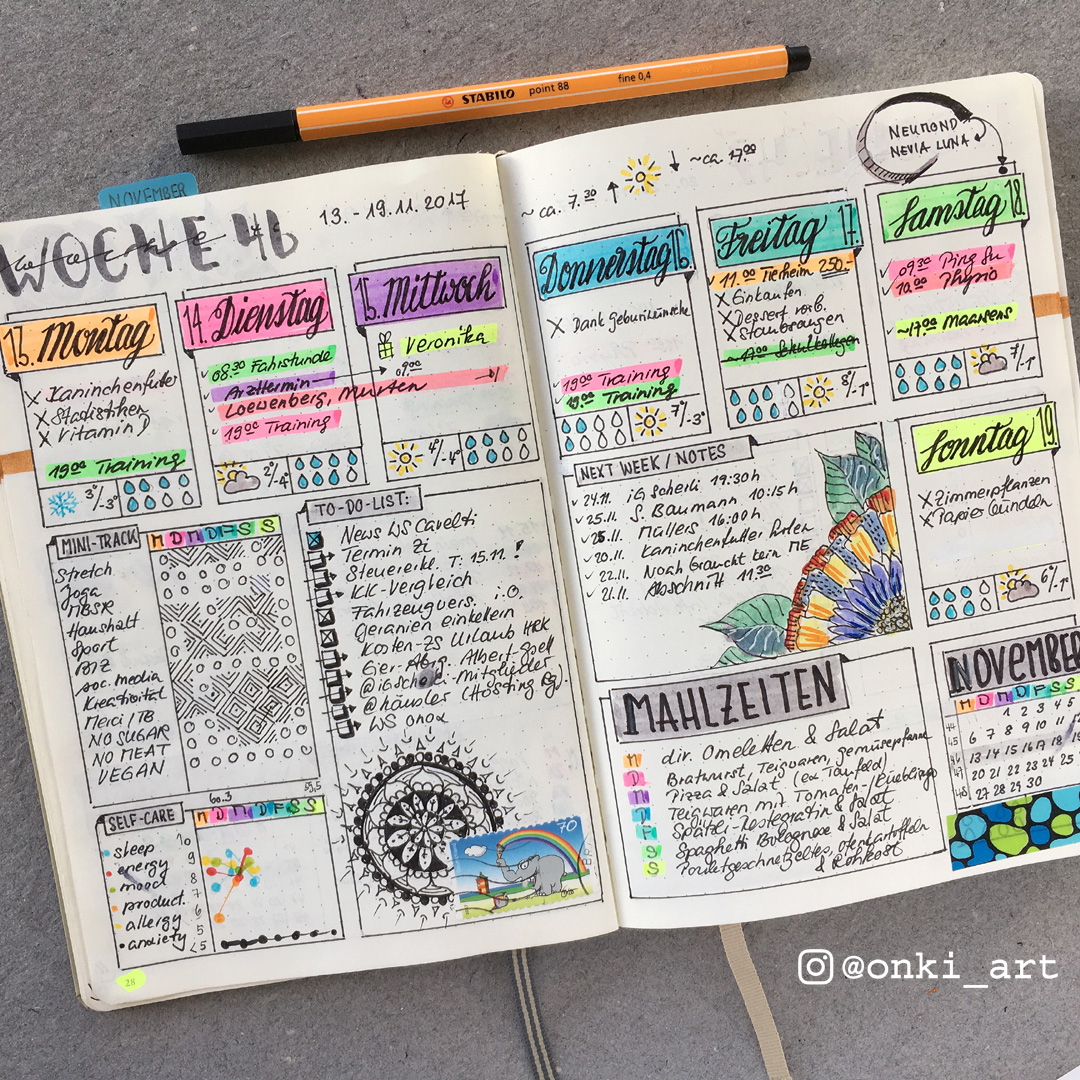 STABILO point 88 fine 0,4
NOVEMBER
WOCHE 46
13. - 19.11.2017
13. Montag
X Kaninchenfutter
X Statistiken
X Vitamin D
19⁰⁰ Training
3°/-3°
14. Dienstag
08.30 Fahrstunde
Arzttermin
Loewenberg, Murten
19⁰⁰ Training
2°/-4°
15. Mittwoch
Veronika
09.⁰⁰
4°/-4°
MINI-TRACK
M D M D F S S
Stretch
Joga
MBSR
Haushalt
Sport
soc. media
Kreativität
Merci / TB
NO SUGAR
NO MEAT
VEGAN
TO-DO-LIST:
News WS Cavelti
Termin Zi
Steuererkl. T: 15.11. !
KK-Vergleich
Fahrzeugvers. i.O.
Geranien einkellern
Kosten-ZS Urlaub
@häusler (Hosting
WS
SELF-CARE
60.3
59,5
M D M D F S S
sleep
energy
mood
product.
allergy
anxiety
10
9
8
7
6
5
<5
28
70
~ ca. 7.³⁰
~ ca. 17.⁰⁰
NEUMOND
NEVIA LUNA
Donnerstag 16
X Dank Geburiwünsche
19⁰⁰ Training
19.⁰⁰ Training
7°/-3°
Freitag 17.
11.⁰⁰ Tierheim 250.-
X Einkaufen
X Dessert vorb.
X Staubsaugen
8°/-1°
Samstag 18.
09.30 Ping Su
10.⁰⁰ Physio
~17⁰⁰ Maassens
7/-1°
Sonntag 19.
X Zimmerpflanzen
X Papier bündeln
6°/-1°
NEXT WEEK / NOTES
24.11. iG Scherli 19:30h
25.11. S. Baumann 10:15h
25.11. Müllers 16:00h
20.11. Kaninchenfutter holen
22.11. Noah braucht kein ME
21.11. Abschnitt 11.³⁰
MAHLZEITEN
M div. Omeletten & Salat
D Bratwurst, Teigwaren, Gemüsepfanne
M Pizza & Salat (ex Täufeld)
D Teigwaren mit Tomaten-/
F Spätzli-Restegratin & Salat
S Spaghetti Bolognese & Salat
S Pouletgeschnetzeltes, Ofenkartoffeln
& Rohkost
NOVEMBER
M D M D F S S
44 1 2 3 4 5
45 6 7 8 9 10 11
46 13 14 15 16 17 18
20 21 22 23 24 25
48 27 28 29 30
@onki_art